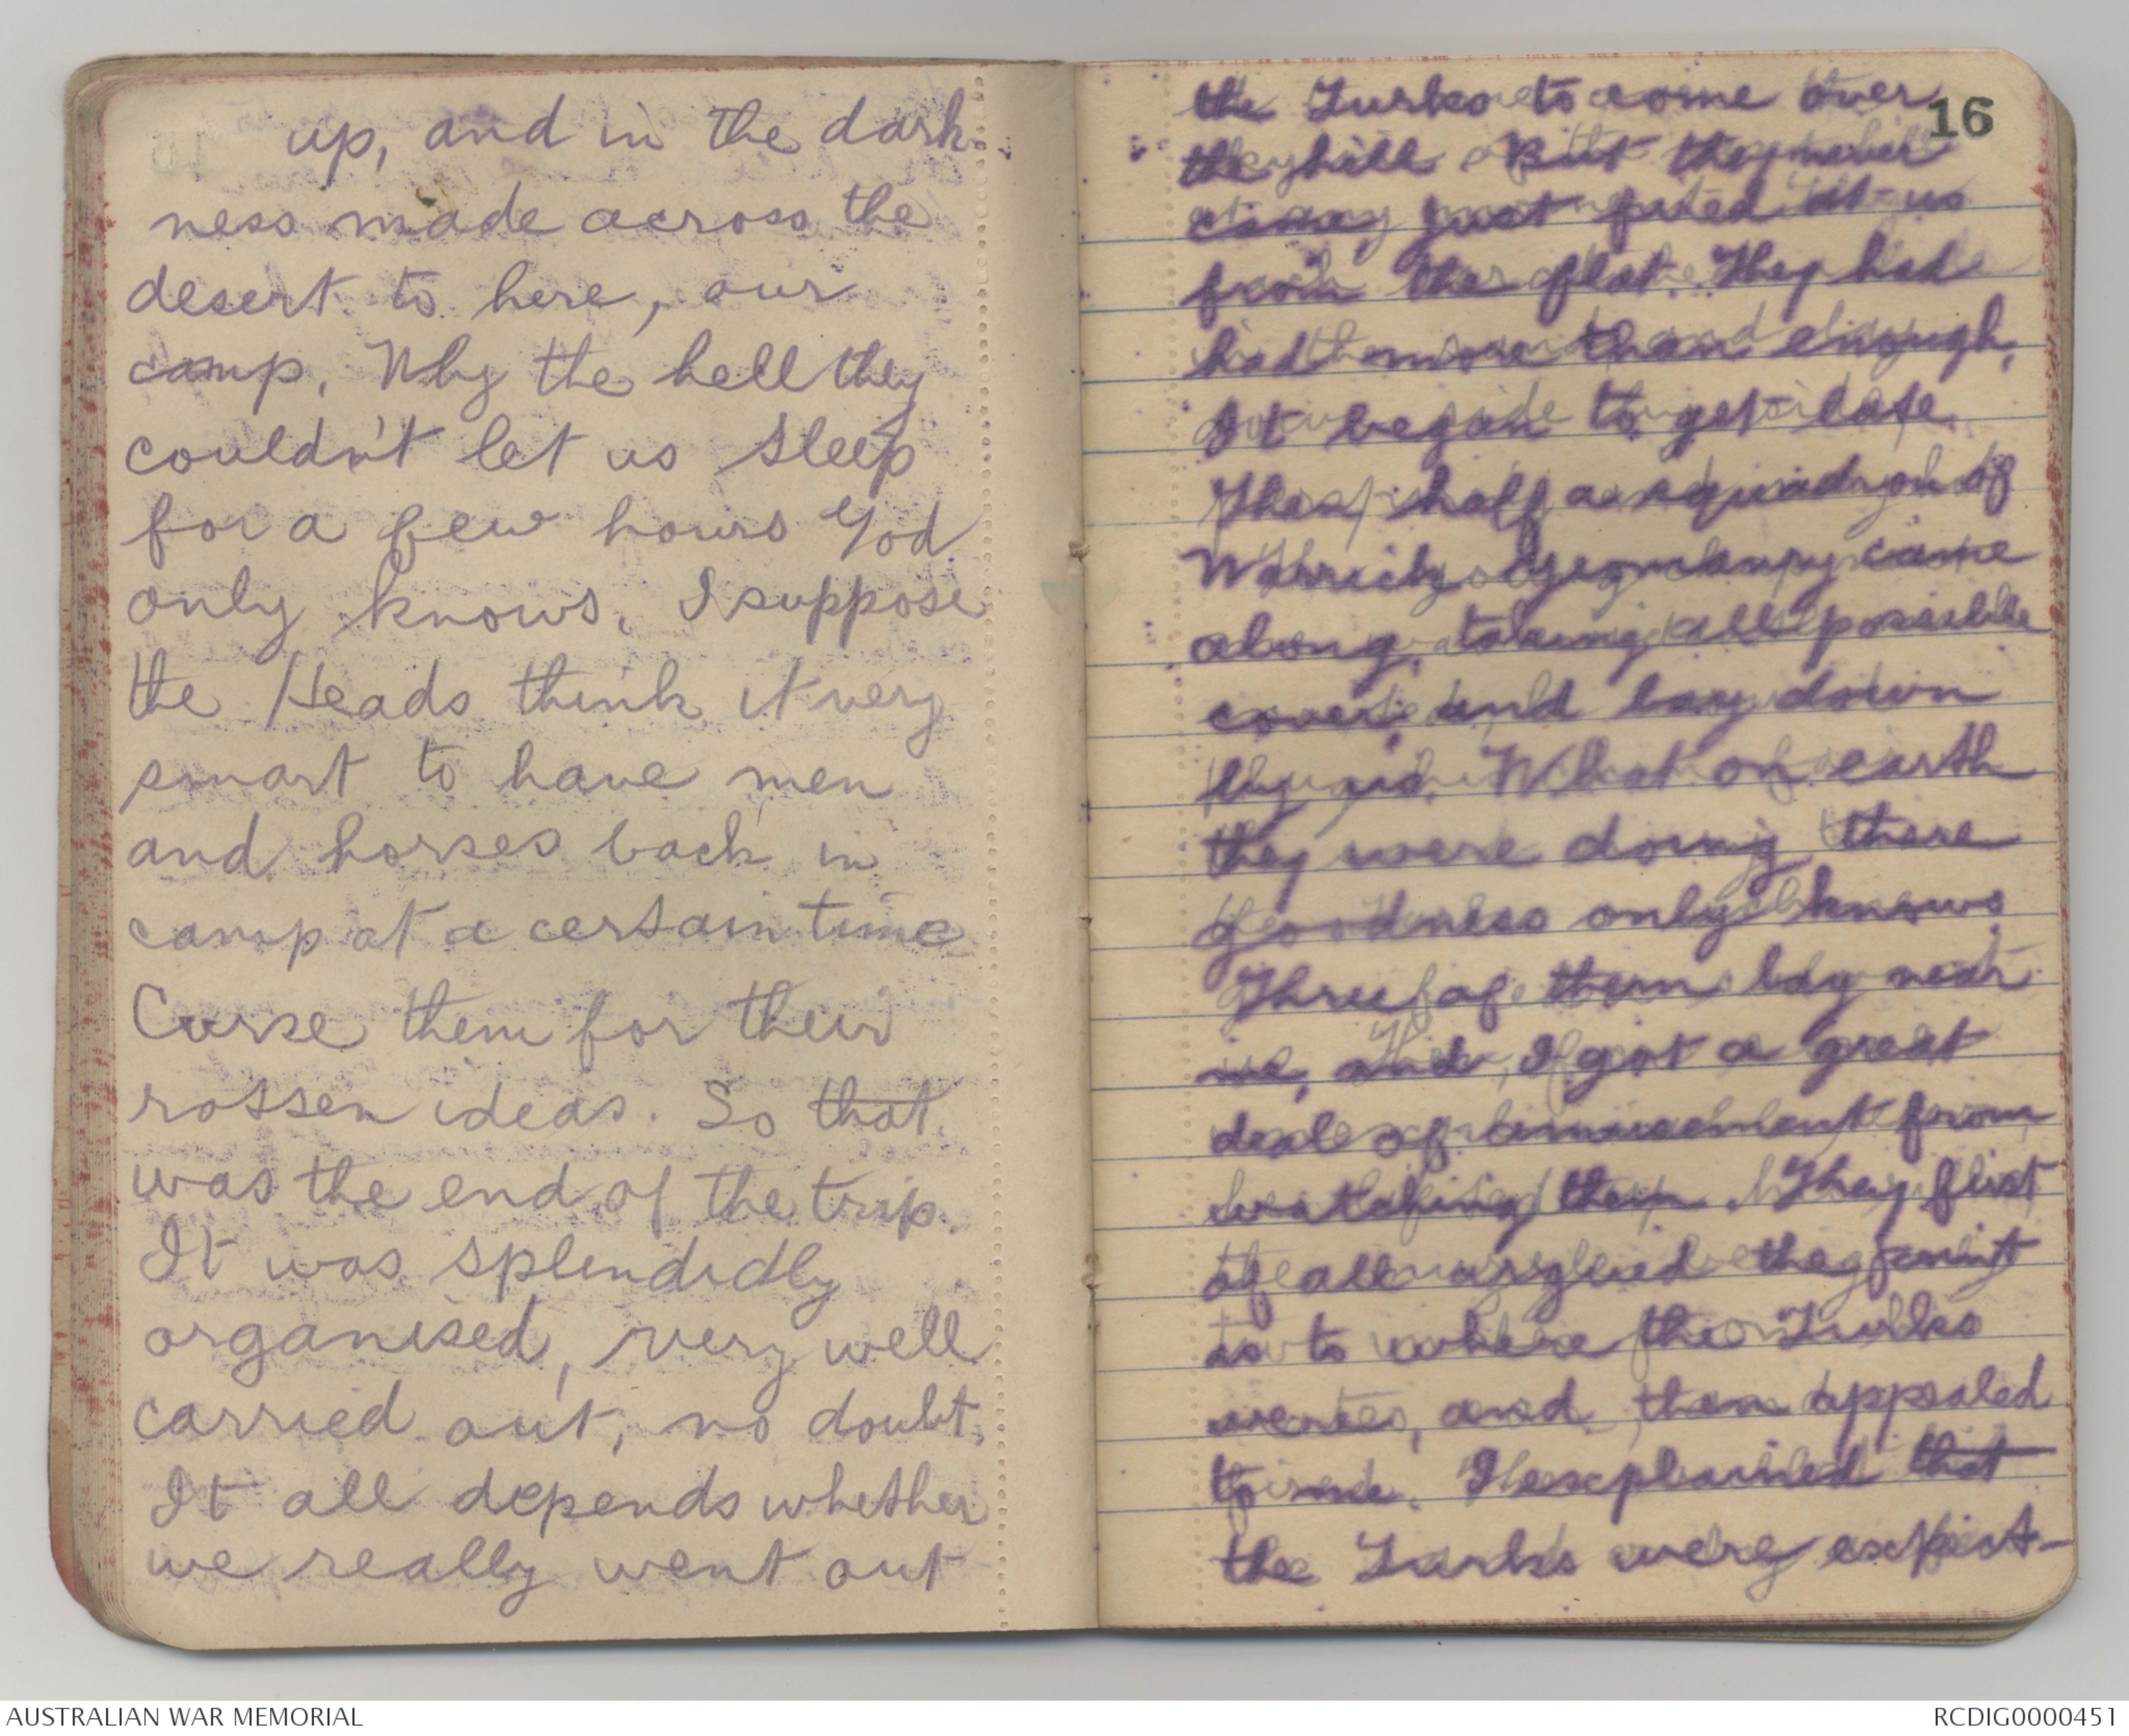 up, and in the dark-
ness made across the
desert to here, our
camp. Why the hell they
couldn't let us sleep
for a few hours God
only knows. I suppose
the Heads think it very
smart to have men
and horses back in
camp at a certain time
Curse them for their
rotten ideas. So that
was the end of the trip.
It was splendidly
organised, very well
carried out, no doubt.
It all depends whether
we really went out
16
the Turks to come over
the hill. But they never
came, just fired at us
from the flat. They had
had more than enough.
It began to get late.
Then half a squadron of
Warrick Yeomanry came
along, taking all possible
cover, and lay down
by us. What on earth
they were doing there
goodness only knows
Three of them lay near
me, and I got a great
deal of amusement from
watching them. They first
of all argued the point
as to where the Turks
were, and then appealed
to me. I explained that
the Turks were expect-
AUSTRALIAN WAR MEMORIAL
RCDIG0000451